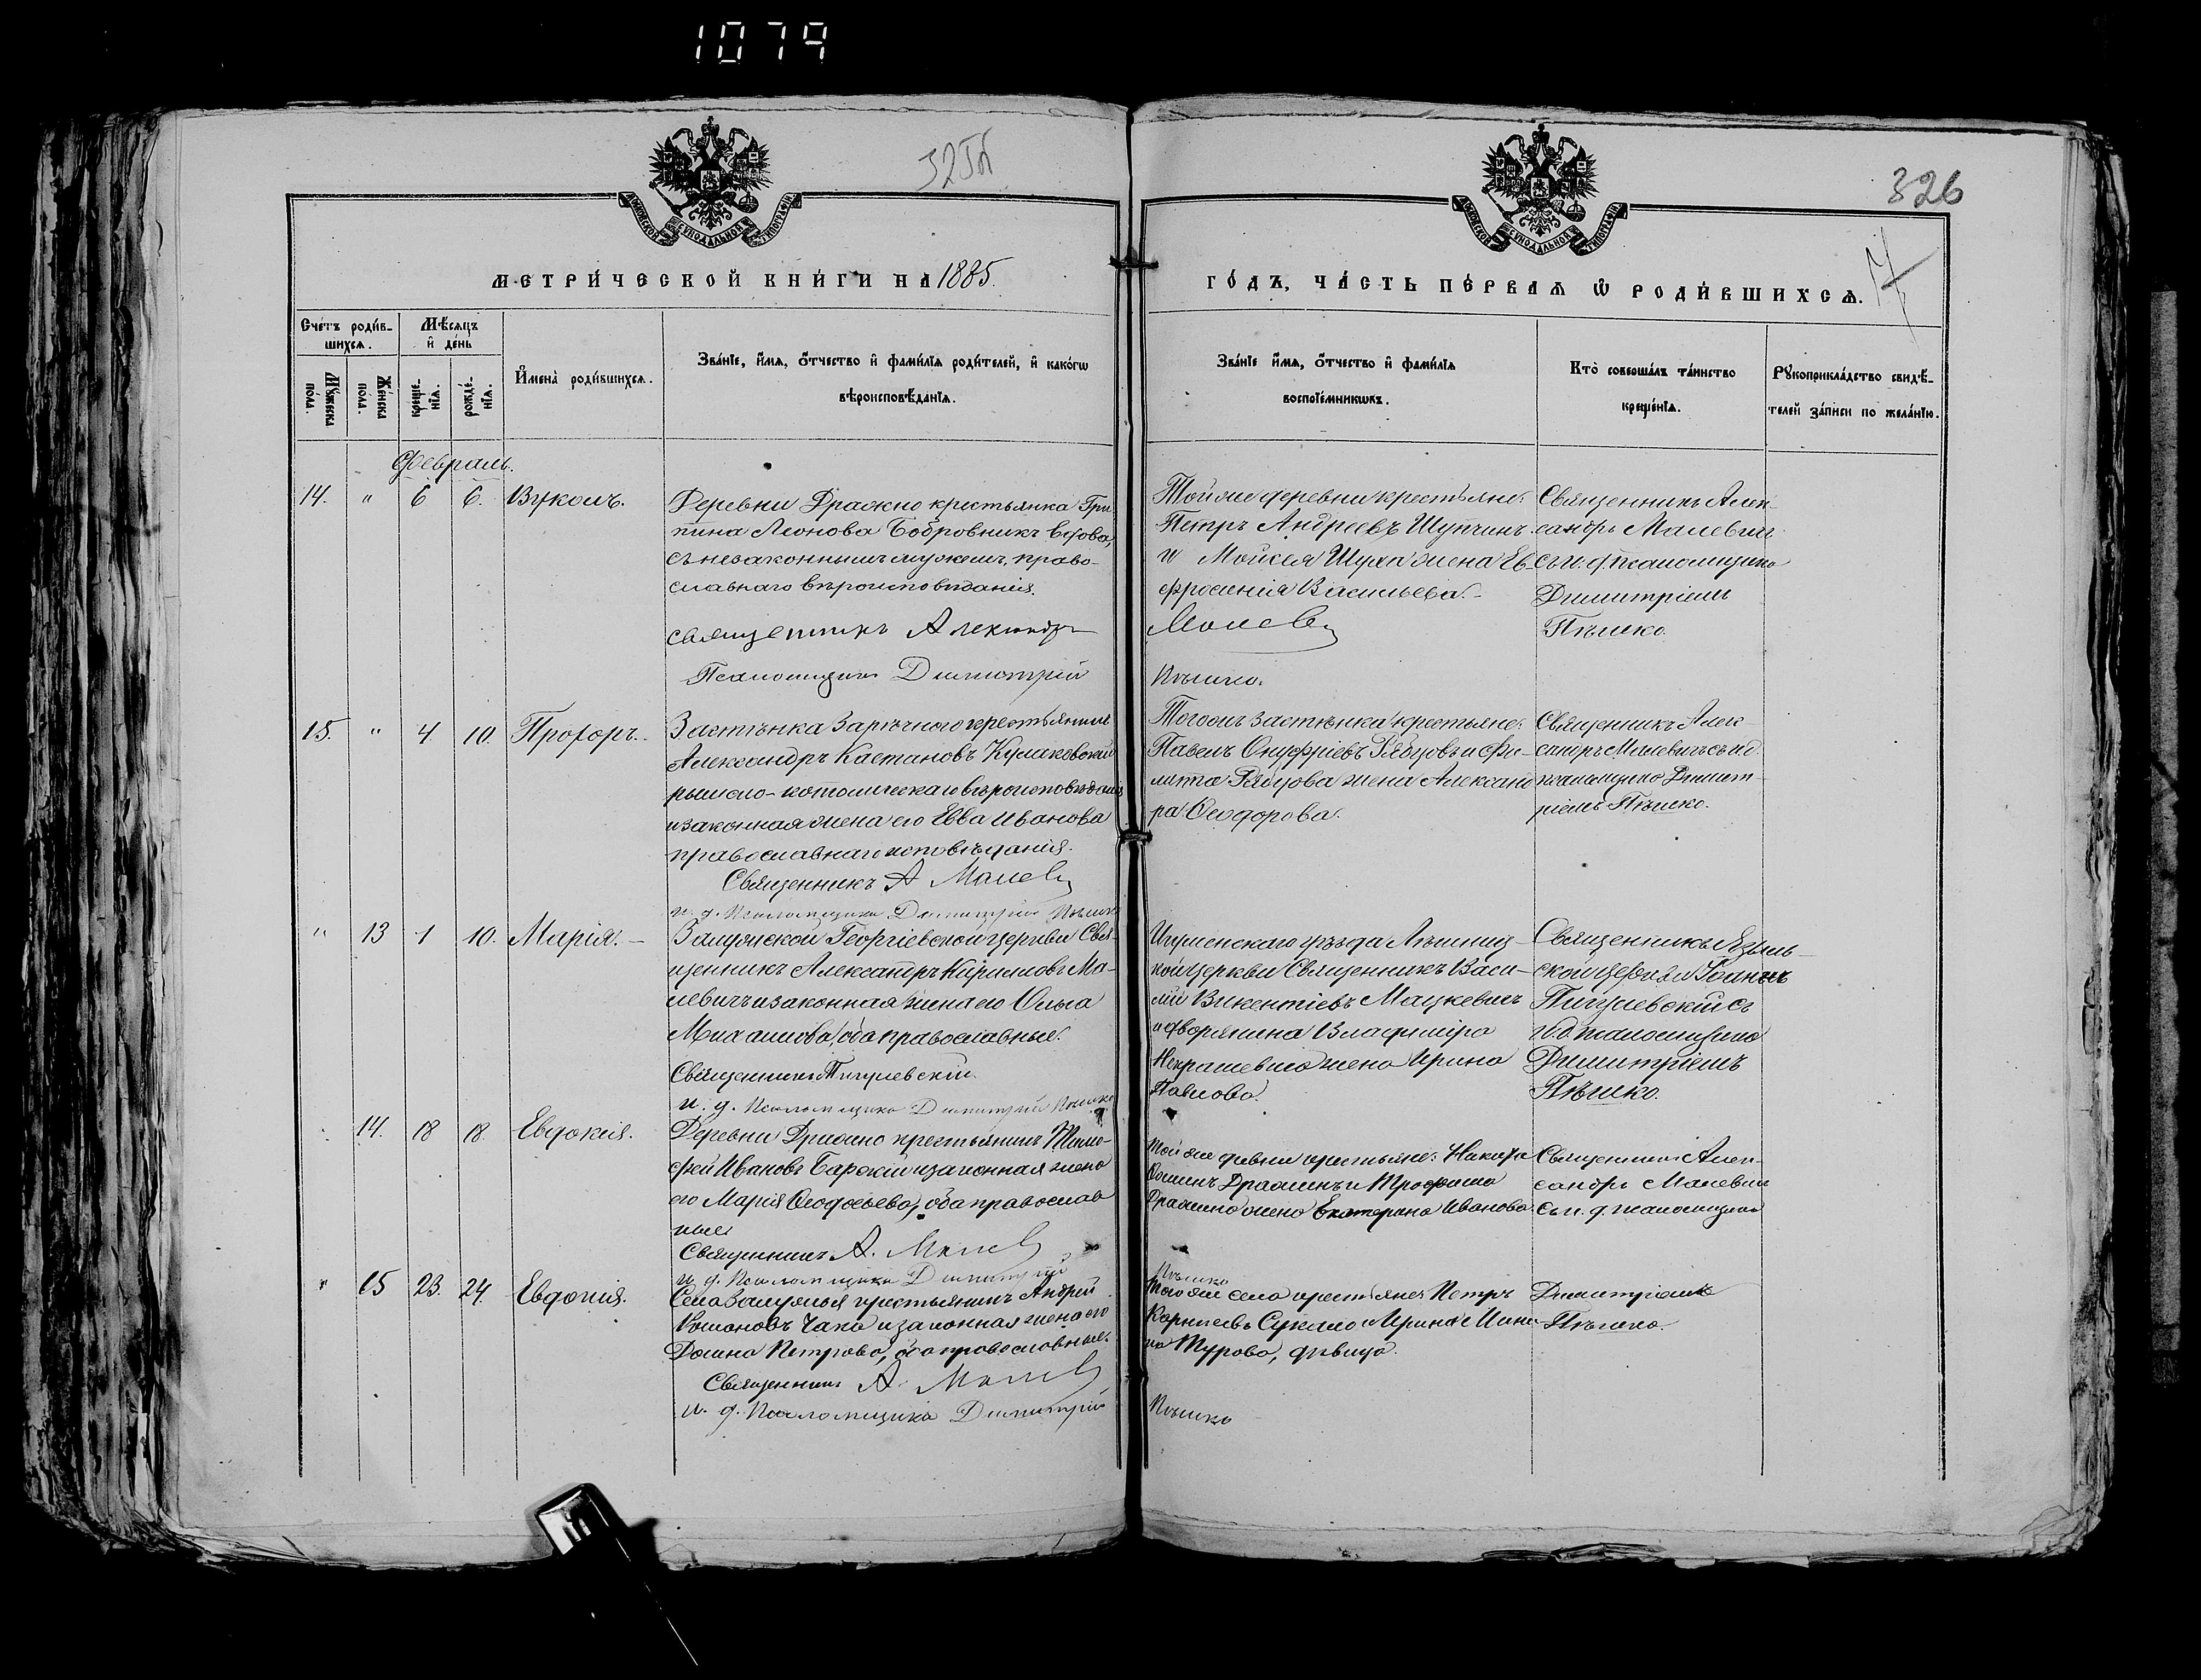 1079
325А
326
17
МОСКОВСКОЙ СѴНОДАЛЬНОЙ ТИПОГРАФІИ
МОСКОВСКОЙ СѴНОДАЛЬНОЙ ТИПОГРАФІИ
МЕТРИ́ЧЕСКОЙ КНИ́ГИ НА 1885.
ГО́ДЪ, ЧА́СТЬ ПЕ́РВАѦ Ѡ҆ РОДИ́ВШИХСѦ.
Сче́тъ роди́в-
шихсѧ.
Мѣ́сѧцъ
и҆ де́нь
Мꙋ́жеска
пола.
Же́нска
пола.
креще́-
нїѧ.
рожде́-
нїѧ.
И҆мена̀ роди́вшихсѧ.
Зва́нїе, и҆́мѧ, ѻ҆́тчество и҆ фами́лїѧ роди́телей, и҆ како́гѡ
вѣроисповѣ́данїѧ.
Зва́нїе и҆́мѧ, ѻ҆́тчество и҆ фами́лїѧ
воспрїе́мникѡвъ.
Кто̀ соверша́лъ та́инство
креще́нїѧ.
Рꙋкоприкла́дство свидѣ́-
телей за́писи по жела́нїю.
Февраль.
14. " 6 6. Вуколъ.
Деревни Дражно крестьянка Гри-
пина Леонова Бобровникъ вдова,
съ незаконнымъ мужемъ, право-
славнаго вѣроисповѣданія.
священникъ Александръ
Псаломщикъ Димитрій
Той же деревни крестьяне:
Петръ Андреевъ
и Мойсея Шуха жена Ев-
фросинія Васильева.
Малев
Пѣшко.
Священникъ Алек-
сандръ Малевич
съ и. д. псаломщика
Димитріемъ
Пѣшко.
15. " 4 10. Прохоръ.
Застѣнка Зарѣчного крестьянинъ
Александръ Каетановъ Кулаковскій
римско-католическаго вѣроисповѣданія
и законная жена его Евва Иванова
православнаго исповѣданія.
Священникъ А Малев
и. д. Псаломщика Димитрій Пѣшко
Того же застѣнка крестьяне:
Павелъ Онуфріевъ Рябцовъ и Фи-
липа Рябцова жена Александ
ра Ѳеодорова.
Священникъ Алек-
сандръ Малевичъ съ и. д.
псаломщика Димит-
ріемъ Пѣшко.
" 13 1 10. Марія.
Георгіевской церкви Свя-
щенникъ Александръ Кириловъ Ма-
левичъ и законная жена его Ольга
Михаилова, оба православные.
Священникъ Пигулевскій.
и. д. Псаломщика Димитрій Пѣшко
Игуменскаго уѣзда
кой церкви Священникъ Васи-
лій Викентіевъ Мацкевичъ
и дворянина Владиміра
Некрашевича жена Ирина
Павлова.
Священникъ Языль-
ской церкви Іоаннъ
Пигулевскій съ
и. д. псаломщика
Димитріемъ
Пѣшко.
14. 18 18. Евдокія.
Деревни Дражно крестьянинъ Тимо-
фей Ивановъ Барскій и законная жена
его Марія Ѳеодосьева, оба православ
ные
Священникъ А. Малев
и. д. Псаломщика Димитрій
Пѣшко
Той же деревни крестьяне: Никифръ
Драминъ и Трофима
Драмина жена Екатерина Иванова.
Священникъ Алек-
сандръ Малевич
съ и. д. псаломщика
" 15 23. 24. Евдокія.
Села крестьянинъ Андрей
Романовъ Чака и законная жена его
Домна Петрова, оба православные.
Священникъ А. Малев
и. д. Псаломщика Димитрій
Пѣшко
Того же села крестьяне Петръ
Корнѣевъ Сукало и Ирина
Турова, дѣвица.
Димитріемъ
Пѣшко.